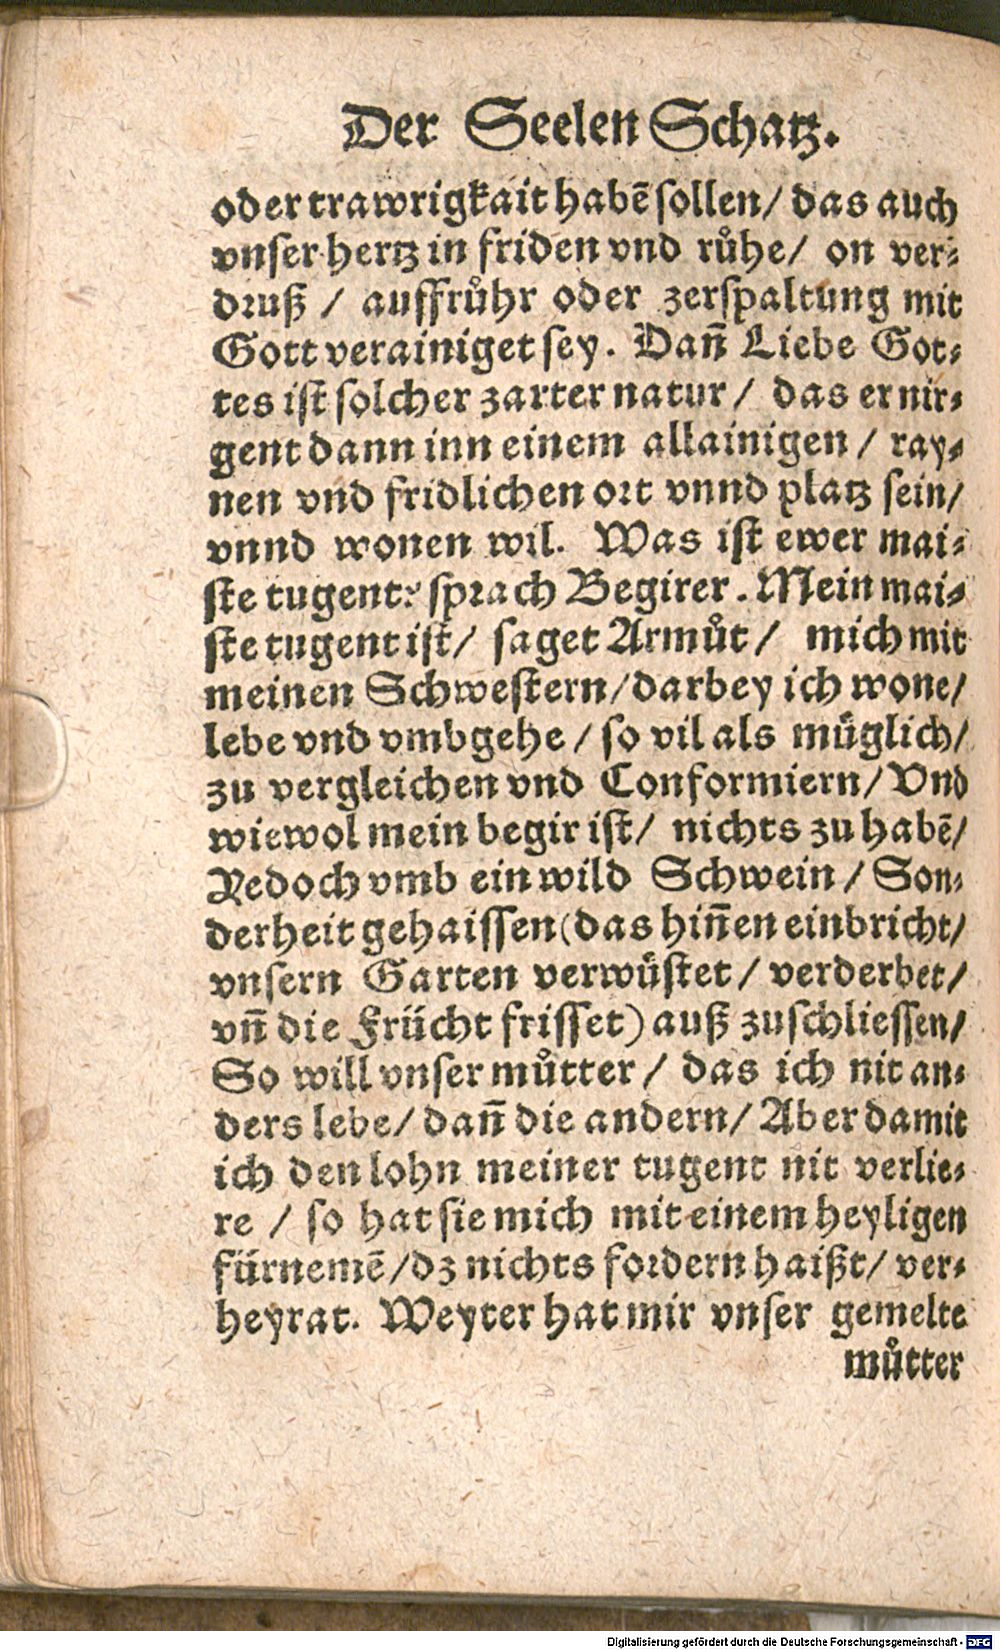 Der Seelen Schatz.
oder trawrigkait habē sollen/ das auch
vnser hertz in friden vnd růhe/ on ver-
druß / auffrůhr oder zerspaltung mit
Gott verainiget sey. Dañ Liebe Got-
tes ist solcher zarter natur / das er nir-
gent dann inn einem allainigen / ray-
nen vnd fridlichen ort vnnd platz sein/
vnnd wonen wil. Was ist ewer mai-
ste tugent? sprach Begirer. Mein mai-
ste tugent ist/ saget Armůt / mich mit
meinen Schwestern/ darbey ich wone/
lebe vnd vmbgehe / so vil als müglich/
zu vergleichen vnd Conformiern/ Vnd
wiewol mein begir ist/ nichts zu habē/
Yedoch vmb ein wild Schwein / Son-
derheit gehaissen (das hiñen einbricht/
vnsern Garten verwüstet / verderbet/
vñ die Frücht frisset) auß zuschliessen/
So will vnser můtter / das ich nit an-
ders lebe/ dañ die andern/ Aber damit
ich den lohn meiner tugent nit verlie-
re / so hat sie mich mit einem heyligen
fürnemē/ dz nichts fordern haißt/ ver-
heyrat. Weyter hat mir vnser gemelte
můtter
Digitalisierung gefördert durch die Deutsche Forschungsgemeinschaft - DFG